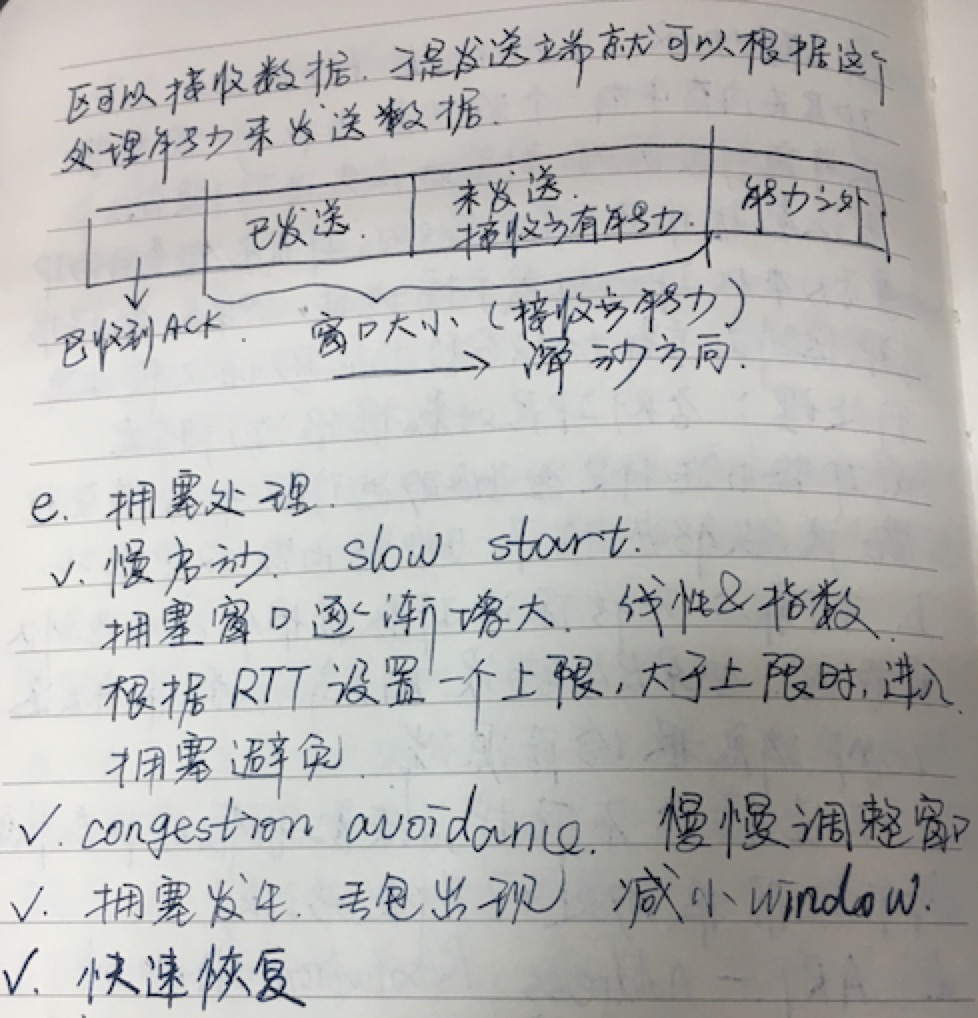 区可以接收数据.于是发送端就可以根据这个
处理能力来发送数据.
已发送.
未发送.
接收方有能力.
能力之外
已收到ACK.
窗口大小(接收方能力)
滑动方向.
e. 拥塞处理.
√. 慢启动. slow start.
拥塞窗口逐渐增大. 线性&指数.
根据RTT设置一个上限,大于上限时,进入
拥塞避免.
√. congestion avoidance. 慢慢调整窗口
√. 拥塞发生. 丢包出现 减小window.
√. 快速恢复